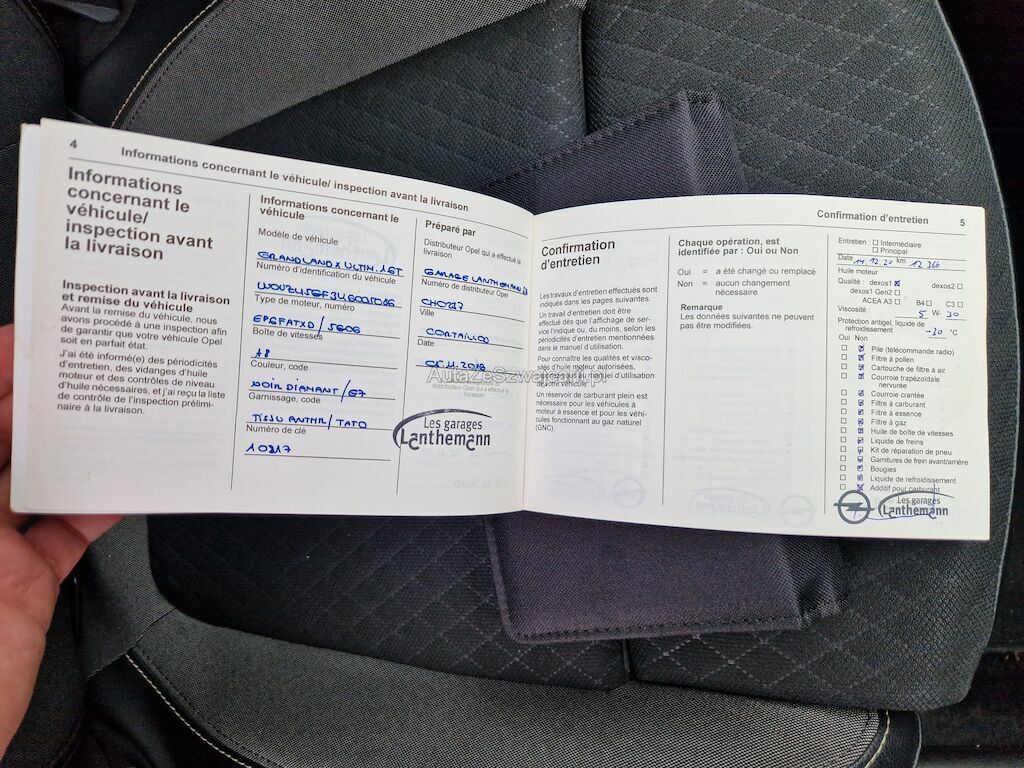 4
Informations concernant le véhicule/ inspection avant la livraison
Informations
concernant le
véhicule/
inspection avant
la livraison
Inspection avant la livraison
et remise du véhicule
Avant la remise du véhicule, nous
avons procédé à une inspection afin
de garantir que votre véhicule Opel
soit en parfait état.
J'ai été informé(e) des périodicités
d'entretien, des vidanges d'huile
moteur et des contrôles de niveau
d'huile nécessaires, et j'ai reçu la liste
de contrôle de l'inspection prélimi-
naire à la livraison.
Informations concernant le
véhicule
Modèle de véhicule
GRANDLAND X ULTIM. 1.6T
Numéro d'identification du véhicule
Type de moteur, numéro
EP6FATXD / 5606
Boîte de vitesses
A8
Couleur, code
NOIR DIAMANT / G7
Garnissage, code
TISSU ANTHR / TATO
Numéro de clé
10817
Préparé par
Distributeur Opel qui a effectué la
livraison
GARAGE LANTHEMANN SA
Numéro de distributeur Opel
CHO727
Ville
CORTAILLOD
Date
05.11.2018
distributeur Opel qui a effectué la
livraison
Les garages
Lanthemann
AutaZeSzwajcarii.pl
Confirmation d'entretien
5
Confirmation
d'entretien
Les travaux d'entretien effectués sont
indiqués dans les pages suivantes.
Un travail d'entretien doit être
effectué dès que l'affichage de ser-
vice l'indique ou, du moins, selon les
périodicités d'entretien mentionnées
dans le manuel d'utilisation.
Pour connaître les qualités et visco-
sités d'huile moteur autorisées,
d'utilisation
de votre véhicule.
Un réservoir de carburant plein est
nécessaire pour les véhicules à
moteur à essence et pour les véhi-
cules fonctionnant au gaz naturel
(GNC).
Chaque opération, est
identifiée par : Oui ou Non
Oui = a été changé ou remplacé
Non = aucun changement
nécessaire
Remarque
Les données suivantes ne peuvent
pas être modifiées.
Entretien : Intermédiaire
Principal
Date 14.12.20 km 12 360
Huile moteur
Qualité : dexos1 dexos2
dexos1 Gen2
ACEA A3 B4 C3
Viscosité : 5 W- 30
Protection antigel, liquide de
refroidissement -30 °C
Oui Non
Pile (télécommande radio)
Filtre à pollen
Cartouche de filtre à air
Courroie trapézoïdale
nervurée
Courroie crantée
Filtre à carburant
Filtre à essence
Filtre à gaz
Huile de boîte de vitesses
Liquide de freins
Kit de réparation de pneu
Garnitures de frein avant/arrière
Bougies
Liquide de refroidissement
Additif pour carburant
Les garages
Lanthemann